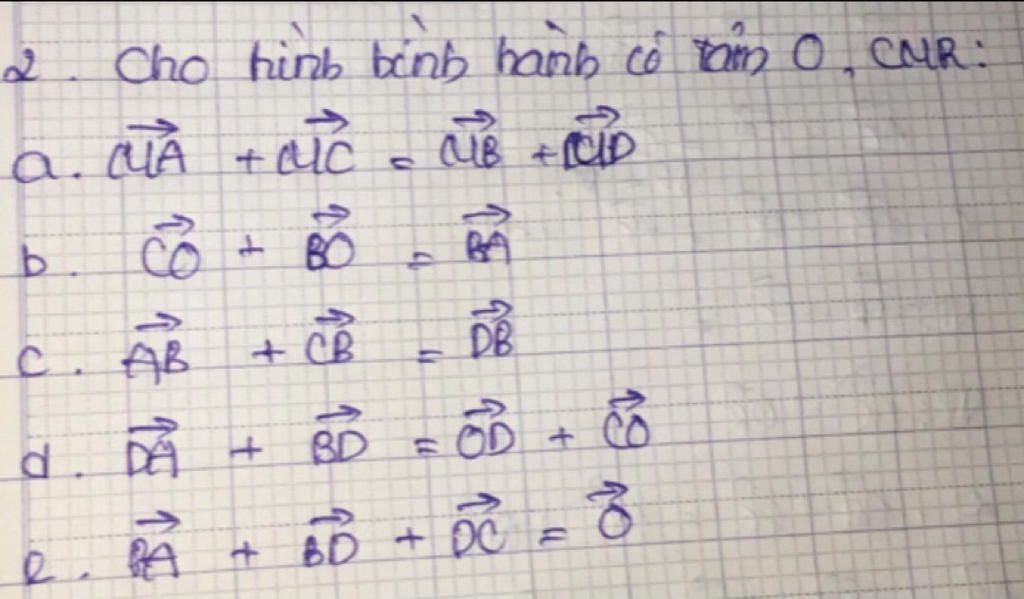 2. Cho hình bình hành có tâm O, CMR:
a. \overrightarrow{MA} + \overrightarrow{MC} = \overrightarrow{MB} + \overrightarrow{MD}
b. \overrightarrow{CO} + \overrightarrow{BO} = \overrightarrow{BA}
c. \overrightarrow{AB} + \overrightarrow{CB} = \overrightarrow{DB}
d. \overrightarrow{DA} + \overrightarrow{BD} = \overrightarrow{OD} + \overrightarrow{CO}
e. \overrightarrow{BA} + \overrightarrow{BD} + \overrightarrow{DC} = \overrightarrow{O}